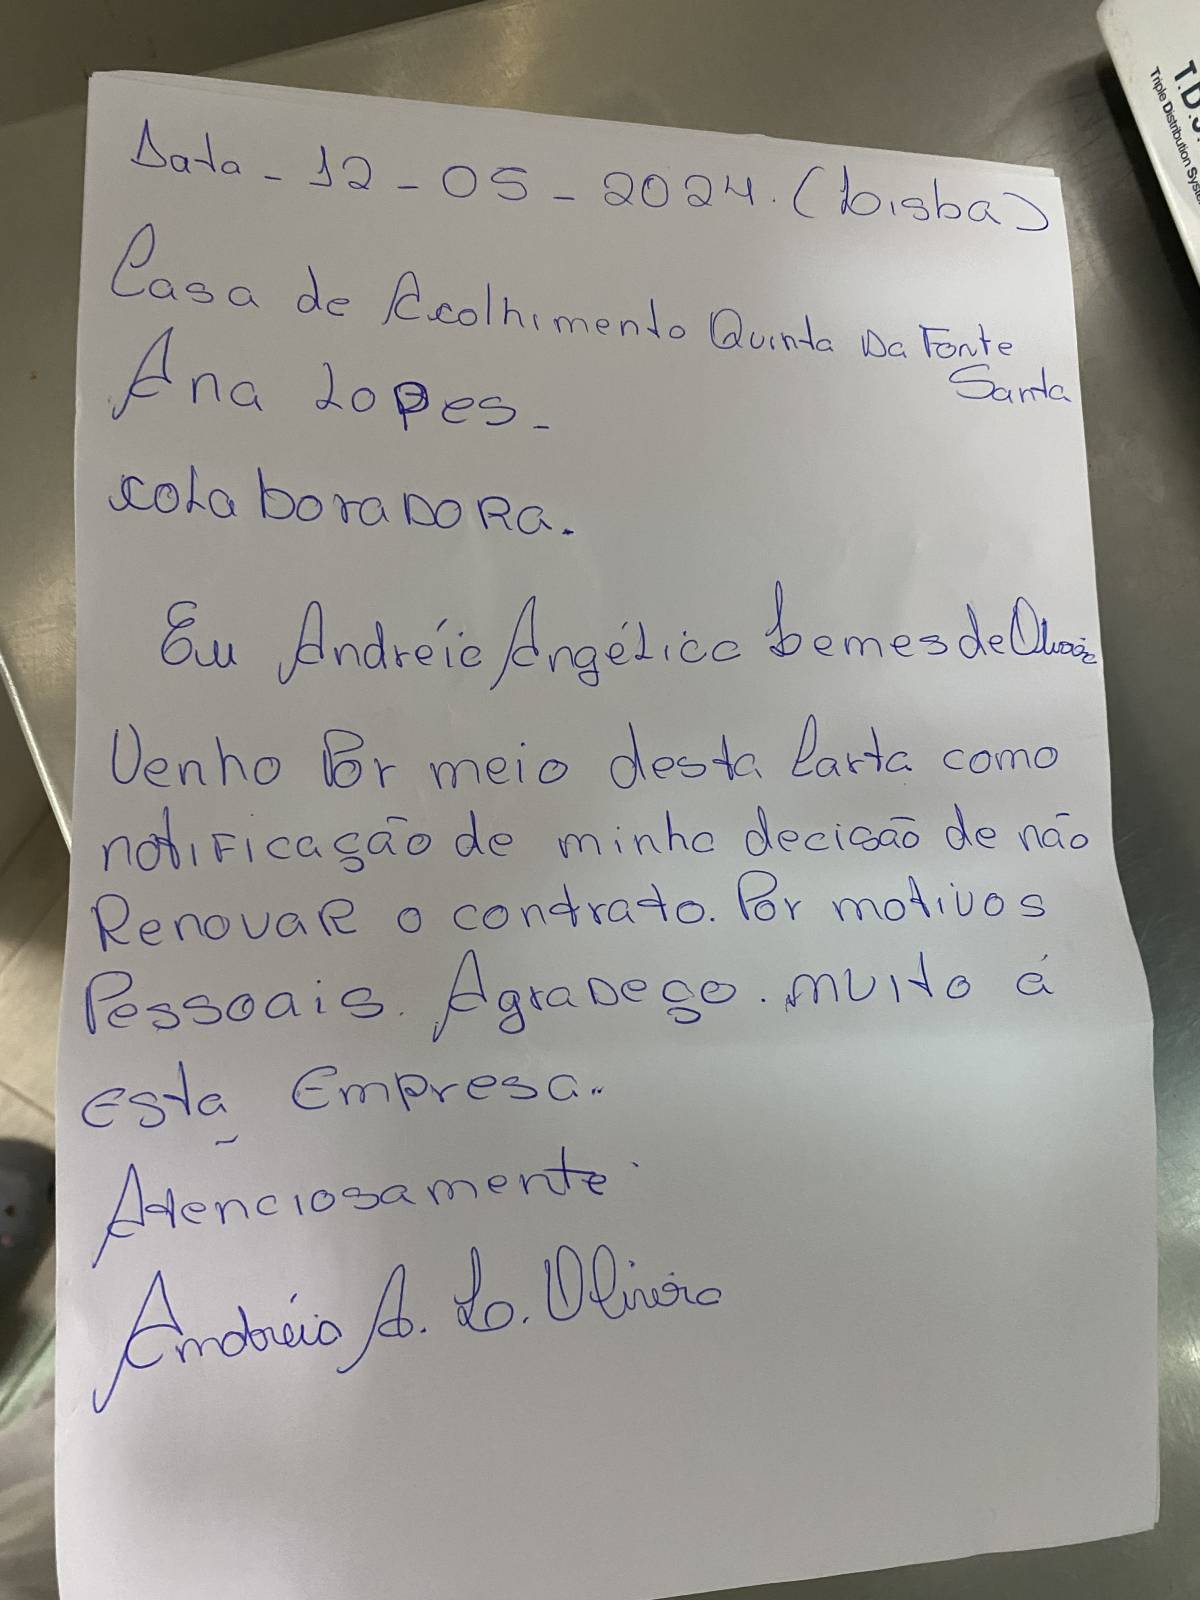 Data - 12 - 05 - 2024. (Lisba)
Casa de Acolhimento Quinta Da Fonte
Santa
Ana Lopes -
colaboraDORa.
Eu Andréia Angélica Lemes de Oliveira
Venho Por meio desta Carta como
notiFicação de minha decisão de não
RenovaR o contrato. Por motivos
Pessoais. AgraDeço. muito á
esta Empresa..
Atenciosamente.
Andréia A. L. Oliveira
T.D.S.
Triple Distribution